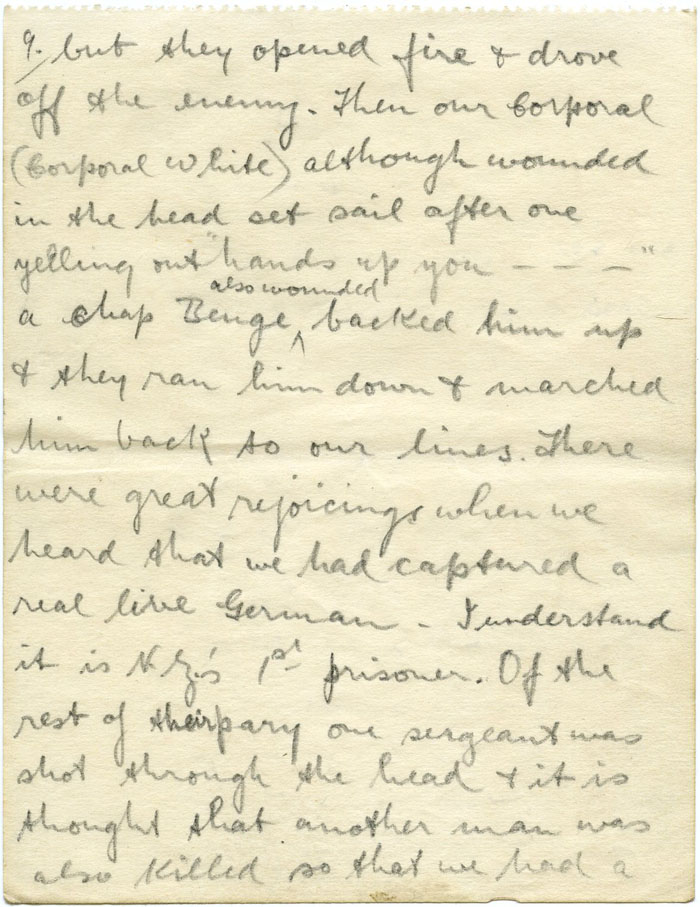 9. but they opened fire & drove
off the enemy. Then our Corporal
(Corporal White) although wounded
in the head set sail after one
yelling out "hands up you - - - "
also wounded
a chap Benge ^ backed him up
& they ran him down & marched
him back to our lines. There
were great rejoicings when we
heard that we had captured a
real live German - I understand
it is N.Z.'s 1st prisoner. Of the
rest of their pary one sergeant was
shot through the head & it is
thought that another man was
also killed so that we had a